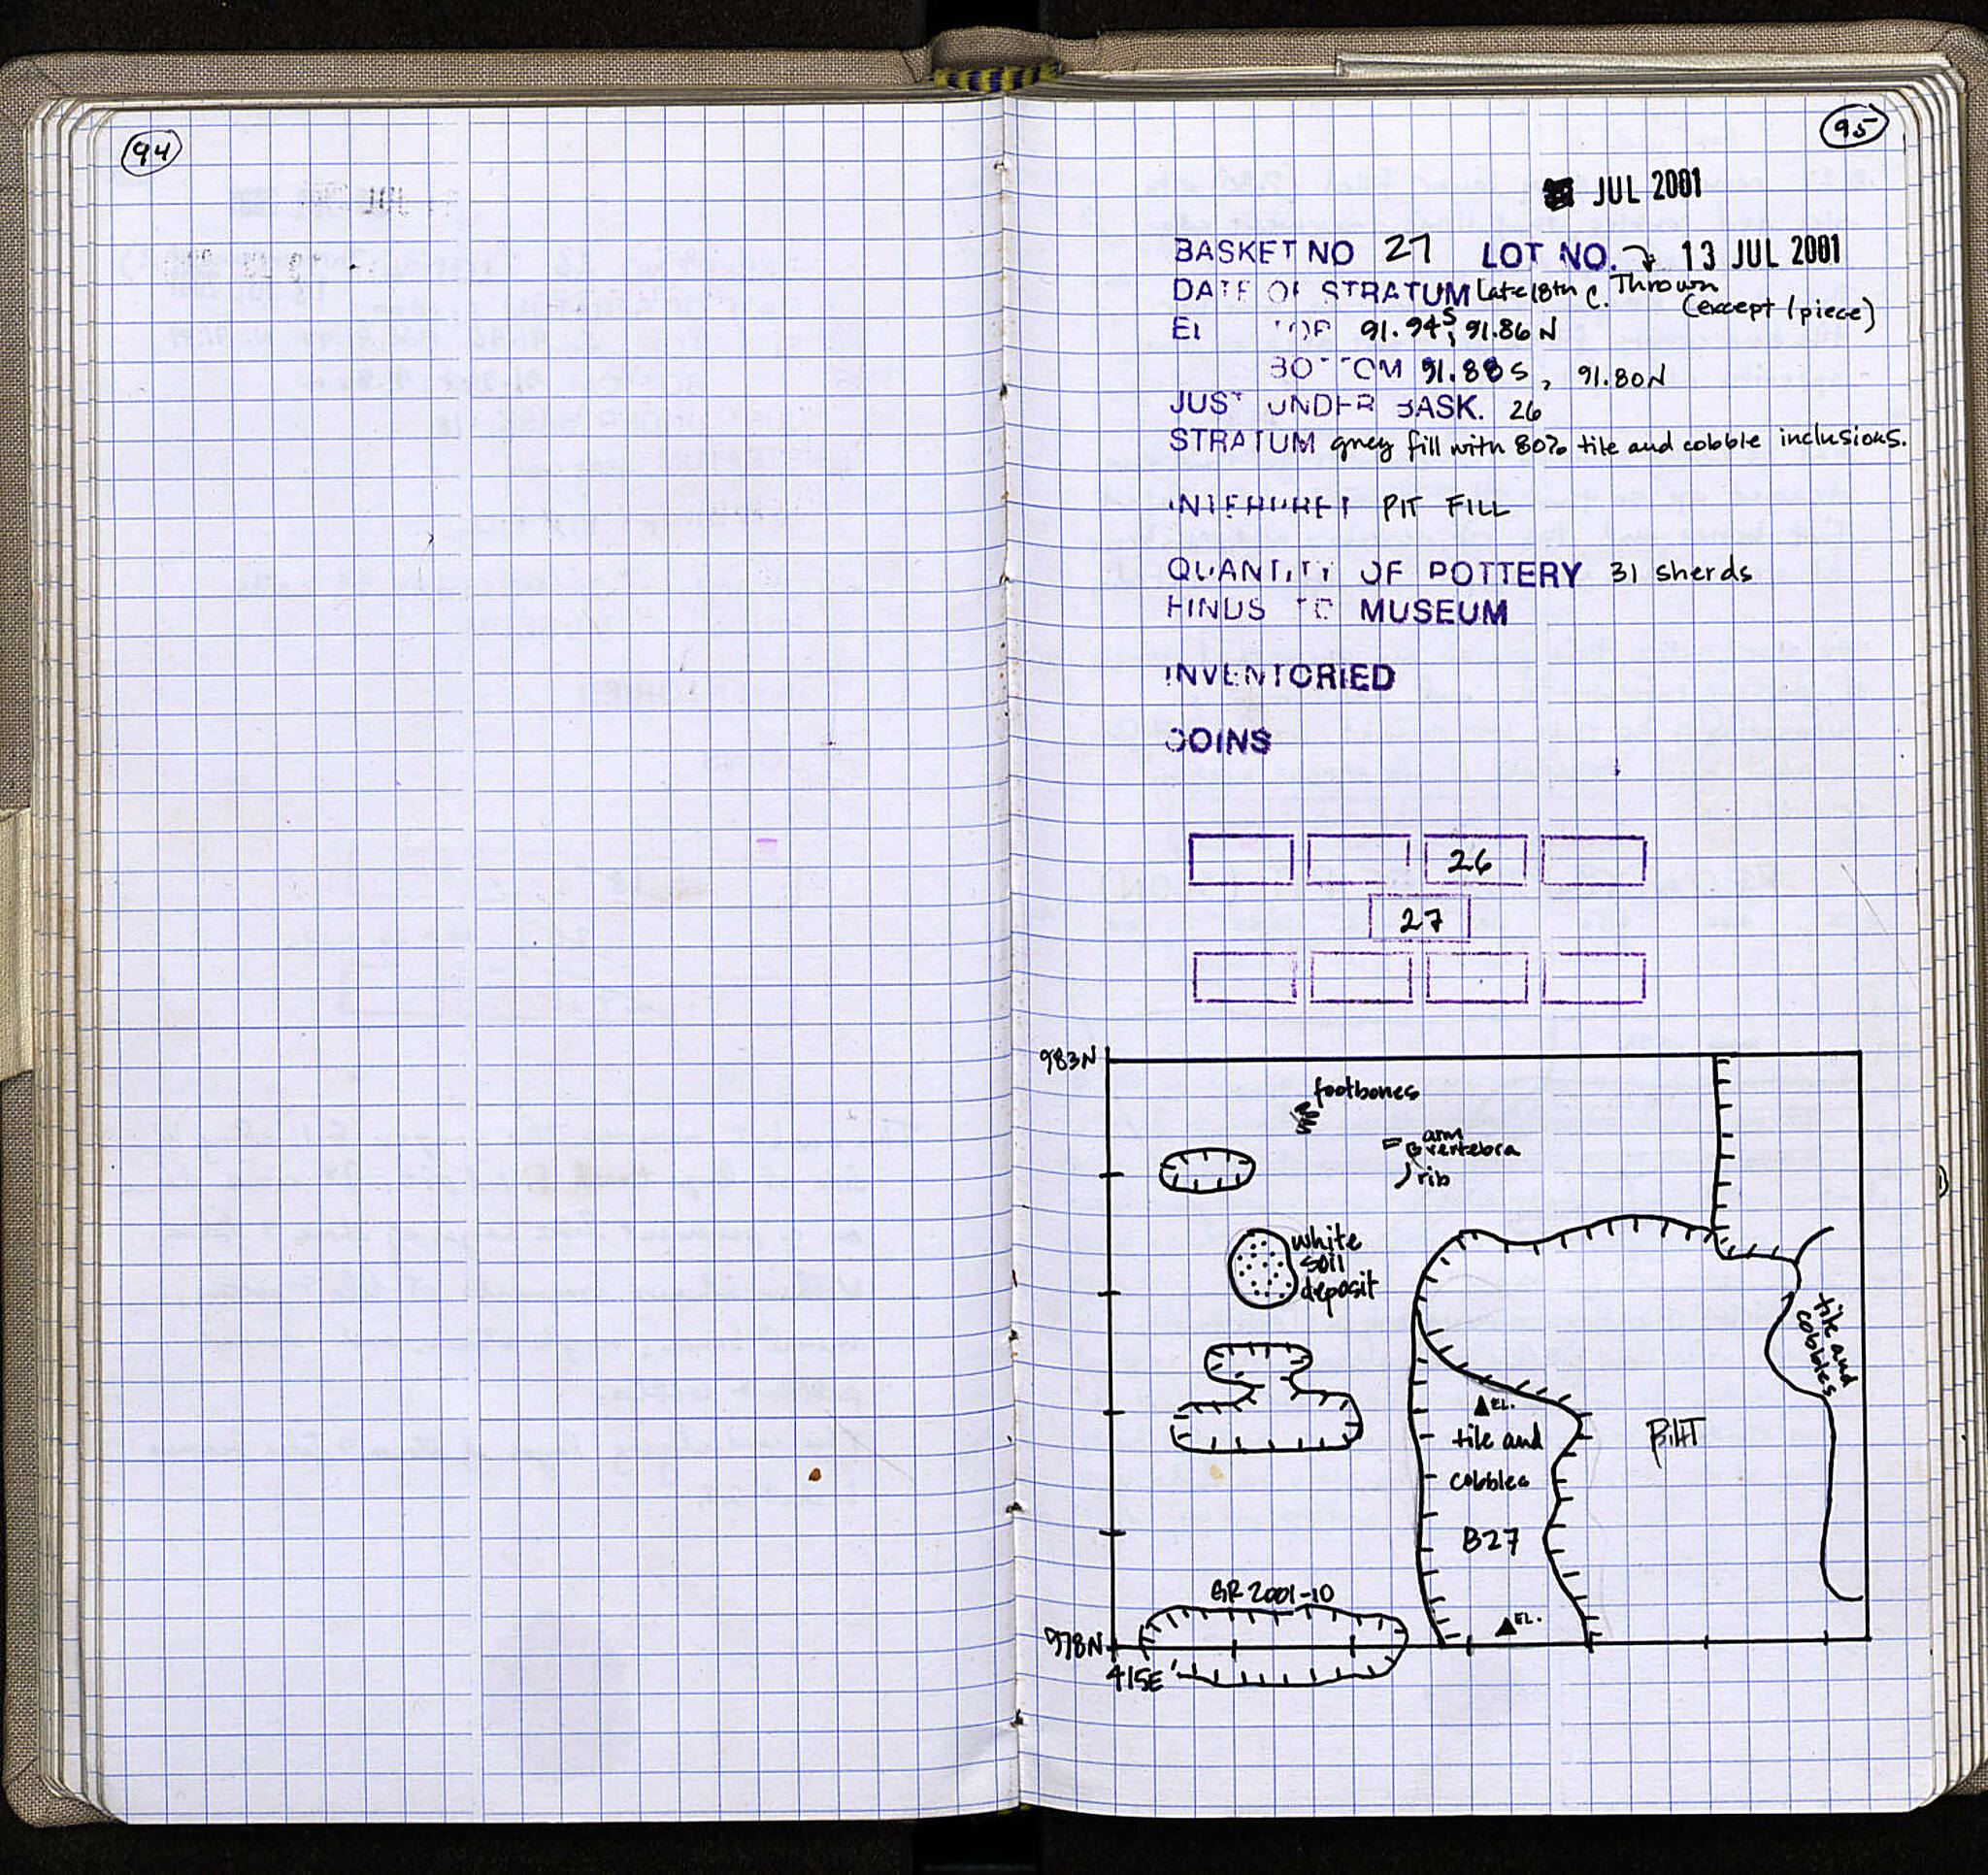 94
95
JUL 2001
BASKET NO 27 LOT NO. 13 JUL 2001
DATE OF STRATUM Late 18th C. Thrown
(except 1 piece)
EL TOP 91.94S; 91.86N
BOTTOM 91.88S, 91.80N
JUST UNDER BASK. 26
STRATUM grey fill with 80% tile and cobble inclusions.
INTERPRET PIT FILL
QUANTITY OF POTTERY 31 sherds
FINDS TO MUSEUM
INVENTORIED
COINS
26
27
983N
footbones
arm
vertebra
rib
white
soil
deposit
tile and
cobbles
EL.
tile and
cobbles
B27
GR 2001-10
EL.
978N
415E